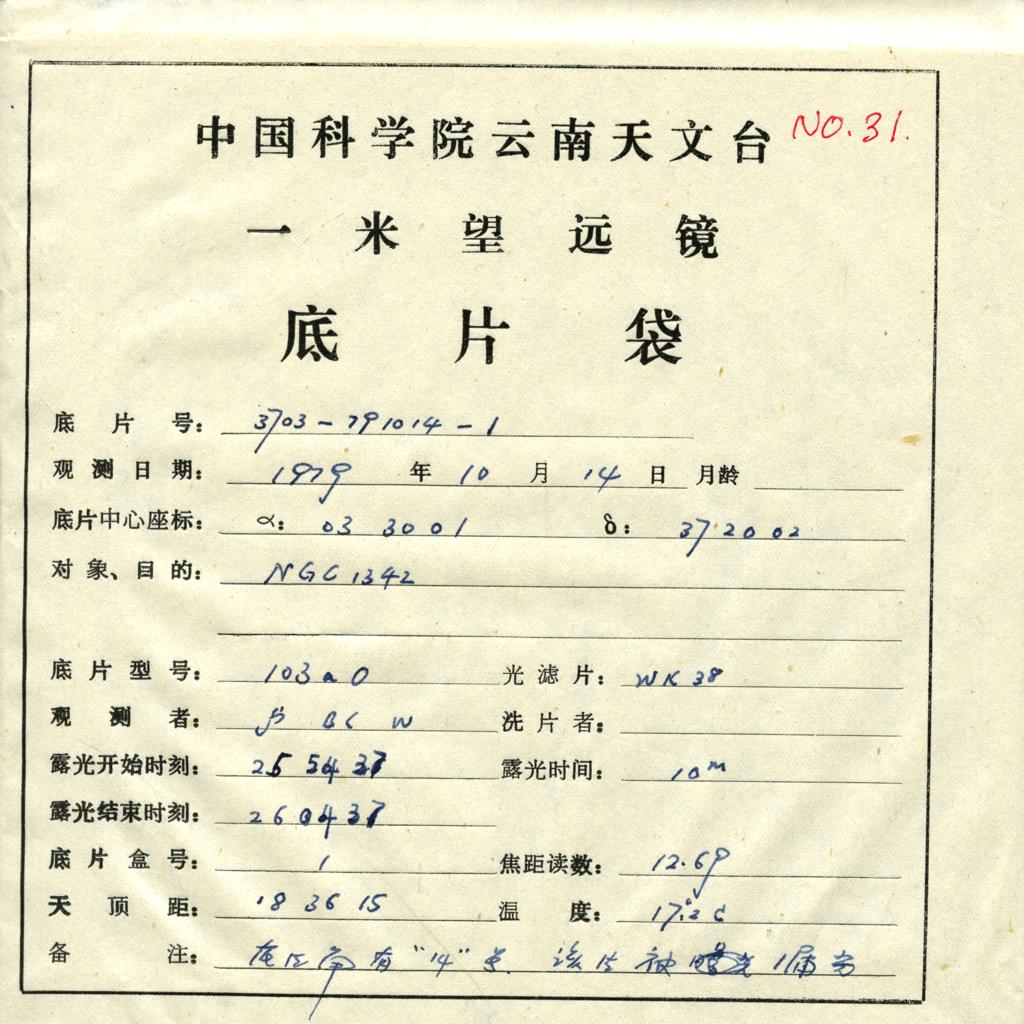 中国科学院云南天文台 NO.31.
一米望远镜
底片袋
底片号: 3703-791014-1
观测日期: 1979 年 10 月 14 日 月龄
底片中心座标: α: 03 30 01 δ: 37 20 02
对象、目的: NGC 1342
底片型号: 103aO 光滤片: WK 38
观测者: BC W 洗片者:
露光开始时刻: 25 54 37 露光时间: 10m
露光结束时刻: 26 04 37
底片盒号: 1 焦距读数: 12.69
天顶距: 18 36 15 温度: 17.2C
备注: 有"14" 该片被曝光